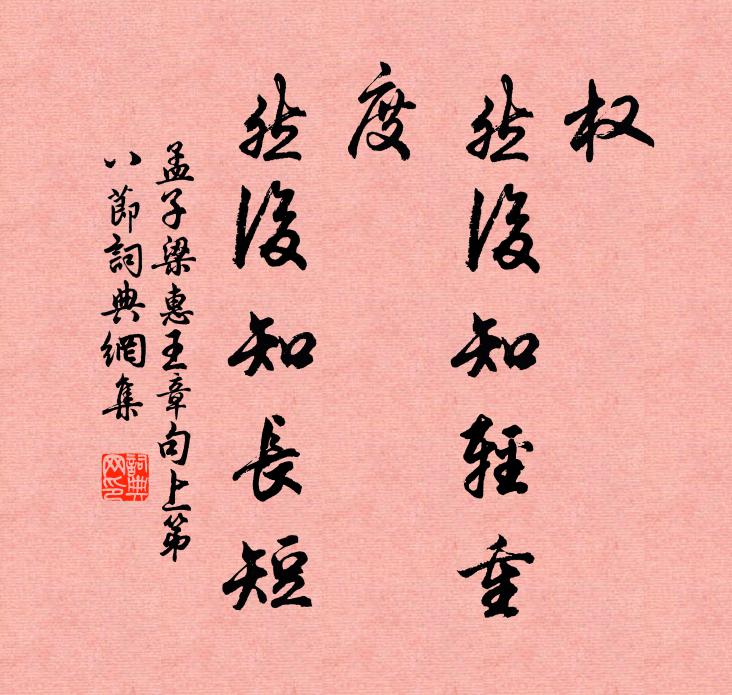 权
然後知輕重
度
然後知長短
孟子梁惠王章句上第
八節詞典網集
詞典
网印